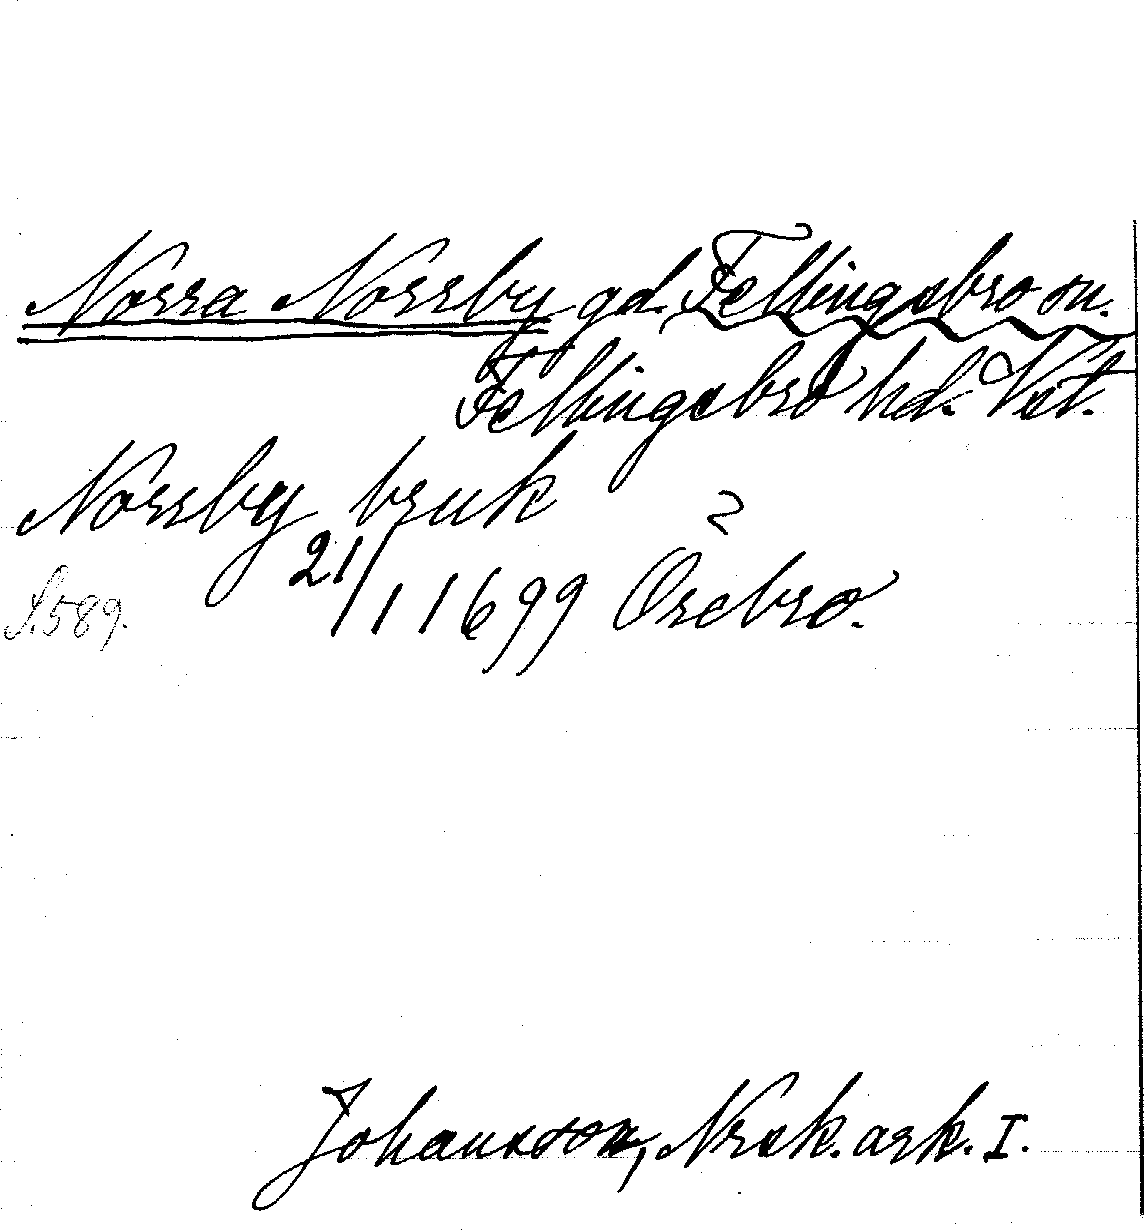 Norra Norrby gd. Fellingsbro sn.
Fellingsbro hd. Vst.
Norrby bruk
S. 589. 21/1 1699 Örebro.
Johansson, Nrsk. ark. I.